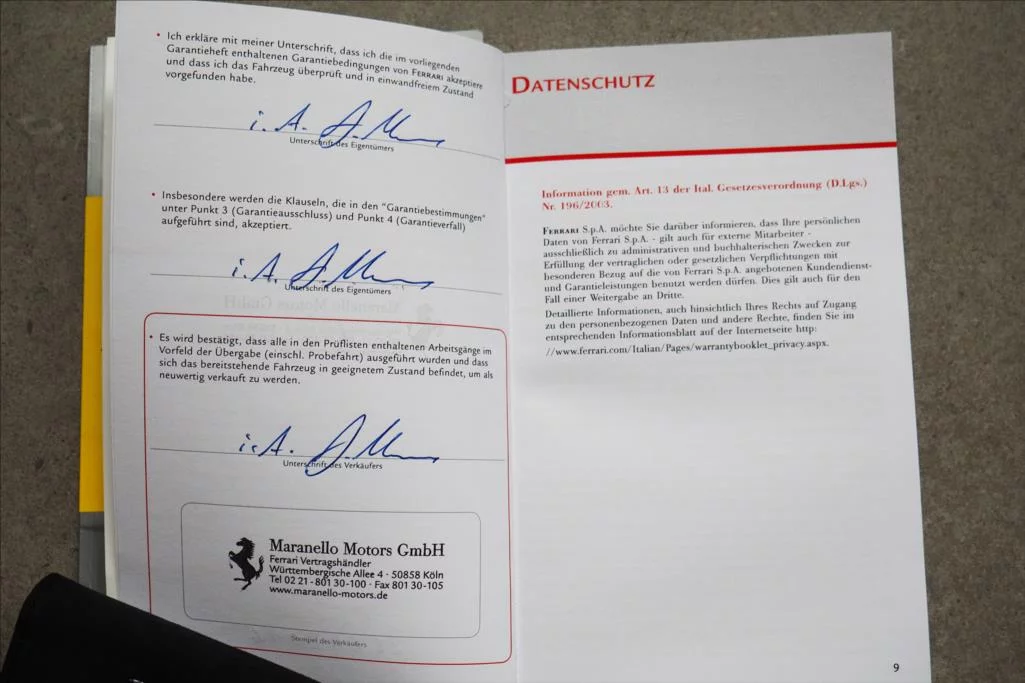 • Ich erkläre mit meiner Unterschrift, dass ich die im vorliegenden
Garantieheft enthaltenen Garantiebedingungen von FERRARI akzeptiere
und dass ich das Fahrzeug überprüft und in einwandfreiem Zustand
vorgefunden habe.
i. A.
Unterschrift des Eigentümers
• Insbesondere werden die Klauseln, die in den "Garantiebestimmungen"
unter Punkt 3 (Garantieausschluss) und Punkt 4 (Garantieverfall)
aufgeführt sind, akzeptiert.
i. A.
Unterschrift des Eigentümers
• Es wird bestätigt, dass alle in den Prüflisten enthaltenen Arbeitsgänge im
Vorfeld der Übergabe (einschl. Probefahrt) ausgeführt wurden und dass
sich das bereitstehende Fahrzeug in geeignetem Zustand befindet, um als
neuwertig verkauft zu werden.
i. A.
Unterschrift des Verkäufers
Maranello Motors GmbH
Ferrari Vertragshändler
Württembergische Allee 4 · 50858 Köln
Tel 02 21 - 801 30-100 · Fax 801 30-105
www.maranello-motors.de
Stempel des Verkäufers
DATENSCHUTZ
Information gem. Art. 13 der Ital. Gesetzesverordnung (D.Lgs.)
Nr. 196/2003.
FERRARI S.p.A. möchte Sie darüber informieren, dass Ihre persönlichen
Daten von Ferrari S.p.A. - gilt auch für externe Mitarbeiter -
ausschließlich zu administrativen und buchhalterischen Zwecken zur
Erfüllung der vertraglichen oder gesetzlichen Verpflichtungen mit
besonderen Bezug auf die von Ferrari S.p.A. angebotenen Kundendienst-
und Garantieleistungen benutzt werden dürfen. Dies gilt auch für den
Fall einer Weitergabe an Dritte.
Detaillierte Informationen, auch hinsichtlich Ihres Rechts auf Zugang
zu den personenbezogenen Daten und andere Rechte, finden Sie im
entsprechenden Informationsblatt auf der Internetseite http:
//www.ferrari.com/Italian/Pages/warrantybooklet_privacy.aspx.
9